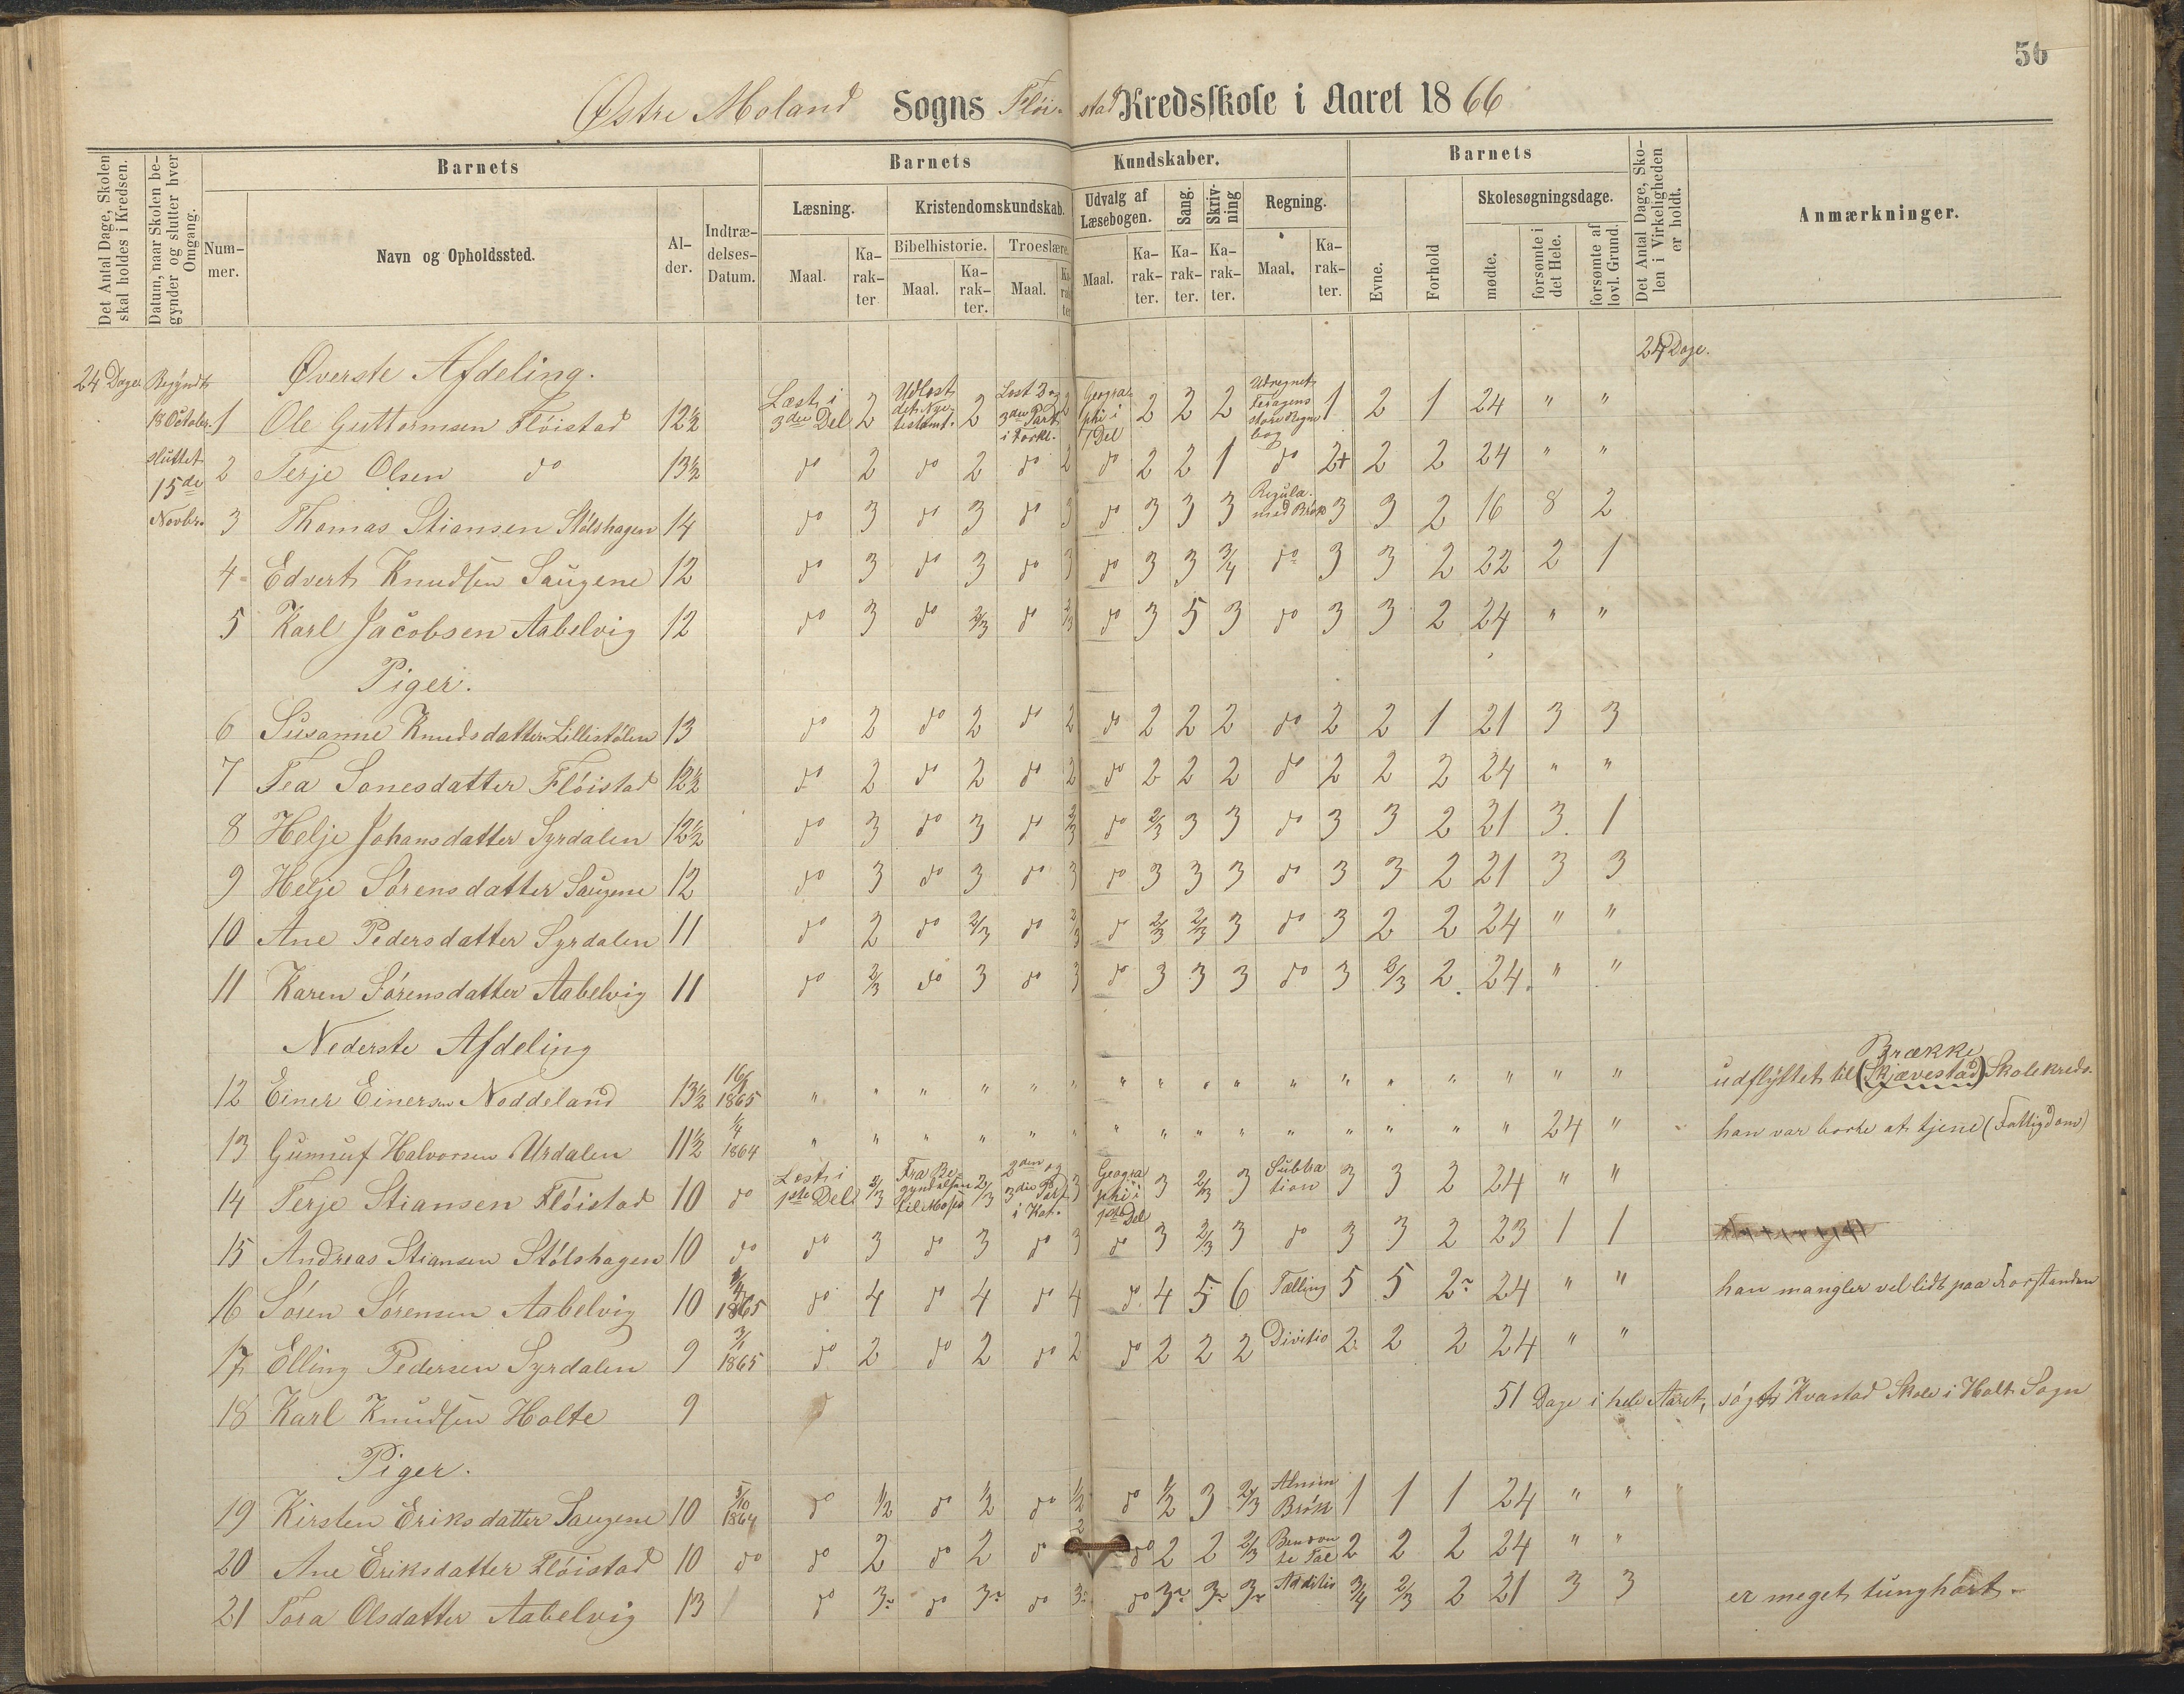 56
Østre Moland Sogns Fløistad Kredsskole i Aaret 1866
Det Antal Dage, Skolen skal holdes i Kredsen.
Datum, naar Skolen begynder og slutter hver Omgang.
Barnets
Nummer.
Navn og Opholdssted.
Alder.
Indtrædelses-Datum.
Barnets Kundskaber.
Læsning.
Maal.
Karakter
Kristendomskundskab.
Bibelhistorie.
Maal.
Karakter.
Troeslære.
Maal.
Karakter
Udvalg af Læsebogen.
Maal.
Karakter.
Sang.
Karakter.
Skrivning
Karakter.
Regning.
Maal.
Karakter.
Barnets
Evne.
Forhold
Skolesøgningsdage.
mødte.
forsømte i det Hele.
forsømte af lovl. Grund.
Det Antal Dage, Skolen i Virkeligheden er holdt.
Anmærkninger.
24 Dage Begyndt 18 October sluttet 15de Novbr.
24 Dage.
Øverste Afdeling.
1 Ole Guttormsen Fløistad 12½ Læst i 3die Del 2 Udlæst det Nye testamt. 2 Læst 2 og 3die Part i Forkl. 2 Geographi i 1 Del 2 2 2 Udregnet Feragens store Regnebog 1 2 1 24 " "
2 Terje Olsen do 13½ do 2 do 2 do 2 do 2 2 1 do 2+ 2 2 24 " "
3 Thomas Stiansen Stølshagen 14 do 3 do 3 do 3 do 3 3 3 Regula. med Brøk 3 3 2 16 8 2
4 Edvert Knudsen Saugene 12 do 3 do 3 do 3 do 3 3 3/4 do 3 3 2 22 2 1
5 Karl Jacobsen Aabelvig 12 do 3 do 2/3 do 2/3 do 3 5 3 do 3 3 2 24 " "
Piger.
6 Susanne Knudsdatter Lillestølen 13 do 2 do 2 do 2 do 2 2 2 do 2 2 1 21 3 3
7 Tea Sonesdatter Fløistad 12½ do 2 do 2 do 2 do 2 2 2 do 2 2 2 24 " "
8 Helje Johansdatter Syrdalen 12½ do 3 do 3 do 2/3 do 2/3 3 3 do 3 3 2 21 3 1
9 Helje Sørensdatter Saugene 12 do 3 do 3 do 3 do 3 3 3 do 3 3 2 21 3 3
10 Ane Pedersdatter Syrdalen 11 do 2 do 2/3 do 2/3 do 2/3 2/3 3 do 3 2 2 24 " "
11 Karen Sørensdatter Aabelvig 11 do 2/3 do 3 do 3 do 3 3 3 do 3 2/3 2 24 " "
Nederste Afdeling
12 Einer Einersen Noddeland 13½ 1865 " " " " " " " " " " " " " " " " " udflyttet til (Skjævestad) Brække Skolekreds.
13 Gunnuf Halvorsen Urdalen 11½ 1/4 1864 " " " " " " " " " " " " " " " 24 " han var borte at tjene (Fattigdom)
14 Terje Stiansen Fløistad 10 do Læst i 1ste Del 2/3 Fra Begyndelsen til Moses 2/3 2den og 3die Part i Kat. 3 Geographi i 1ste Del 3 2/3 3 Subtration 3 3 2 24 " "
15 Andreas Stiansen Stølshagen 10 do do 3 do 3 do 3 do 3 2/3 3 do 3 3 2 23 1 1
16 Søren Sørensen Aabelvig 10 1865 do 4 do 4 do 4 do 4 5 6 Tælling 5 5 2 24 " " han mangler vel lidt paa Forstanden
17 Elling Pedersen Syrdalen 9 3/1 1865 do 2 do 2 do 2 do 2 2 2 Divitio 2 2 2 24 " "
18 Karl Knudsen Holte 9 51 Dage i hele Aaret, søgt Kvastad Skole i Holt Sogn
Piger.
19 Kirsten Eriksdatter Saugene 10 5/10 1864 do 1/2 do 1/2 do 1/2 do 1/2 3 2/3 Almin Brøk 1 1 1 24 " "
20 Ane Eriksdatter Fløistad 10 do do 2 do 2 do 2 do 2 2 2/3 Benævnte Tal 2 2 2 24 " "
21 Tora Olsdatter Aabelvig 13 do 3 do 3 do 3 do 3 3 3 Additio 3/4 2/3 2 21 3 3 er meget tunghørt.